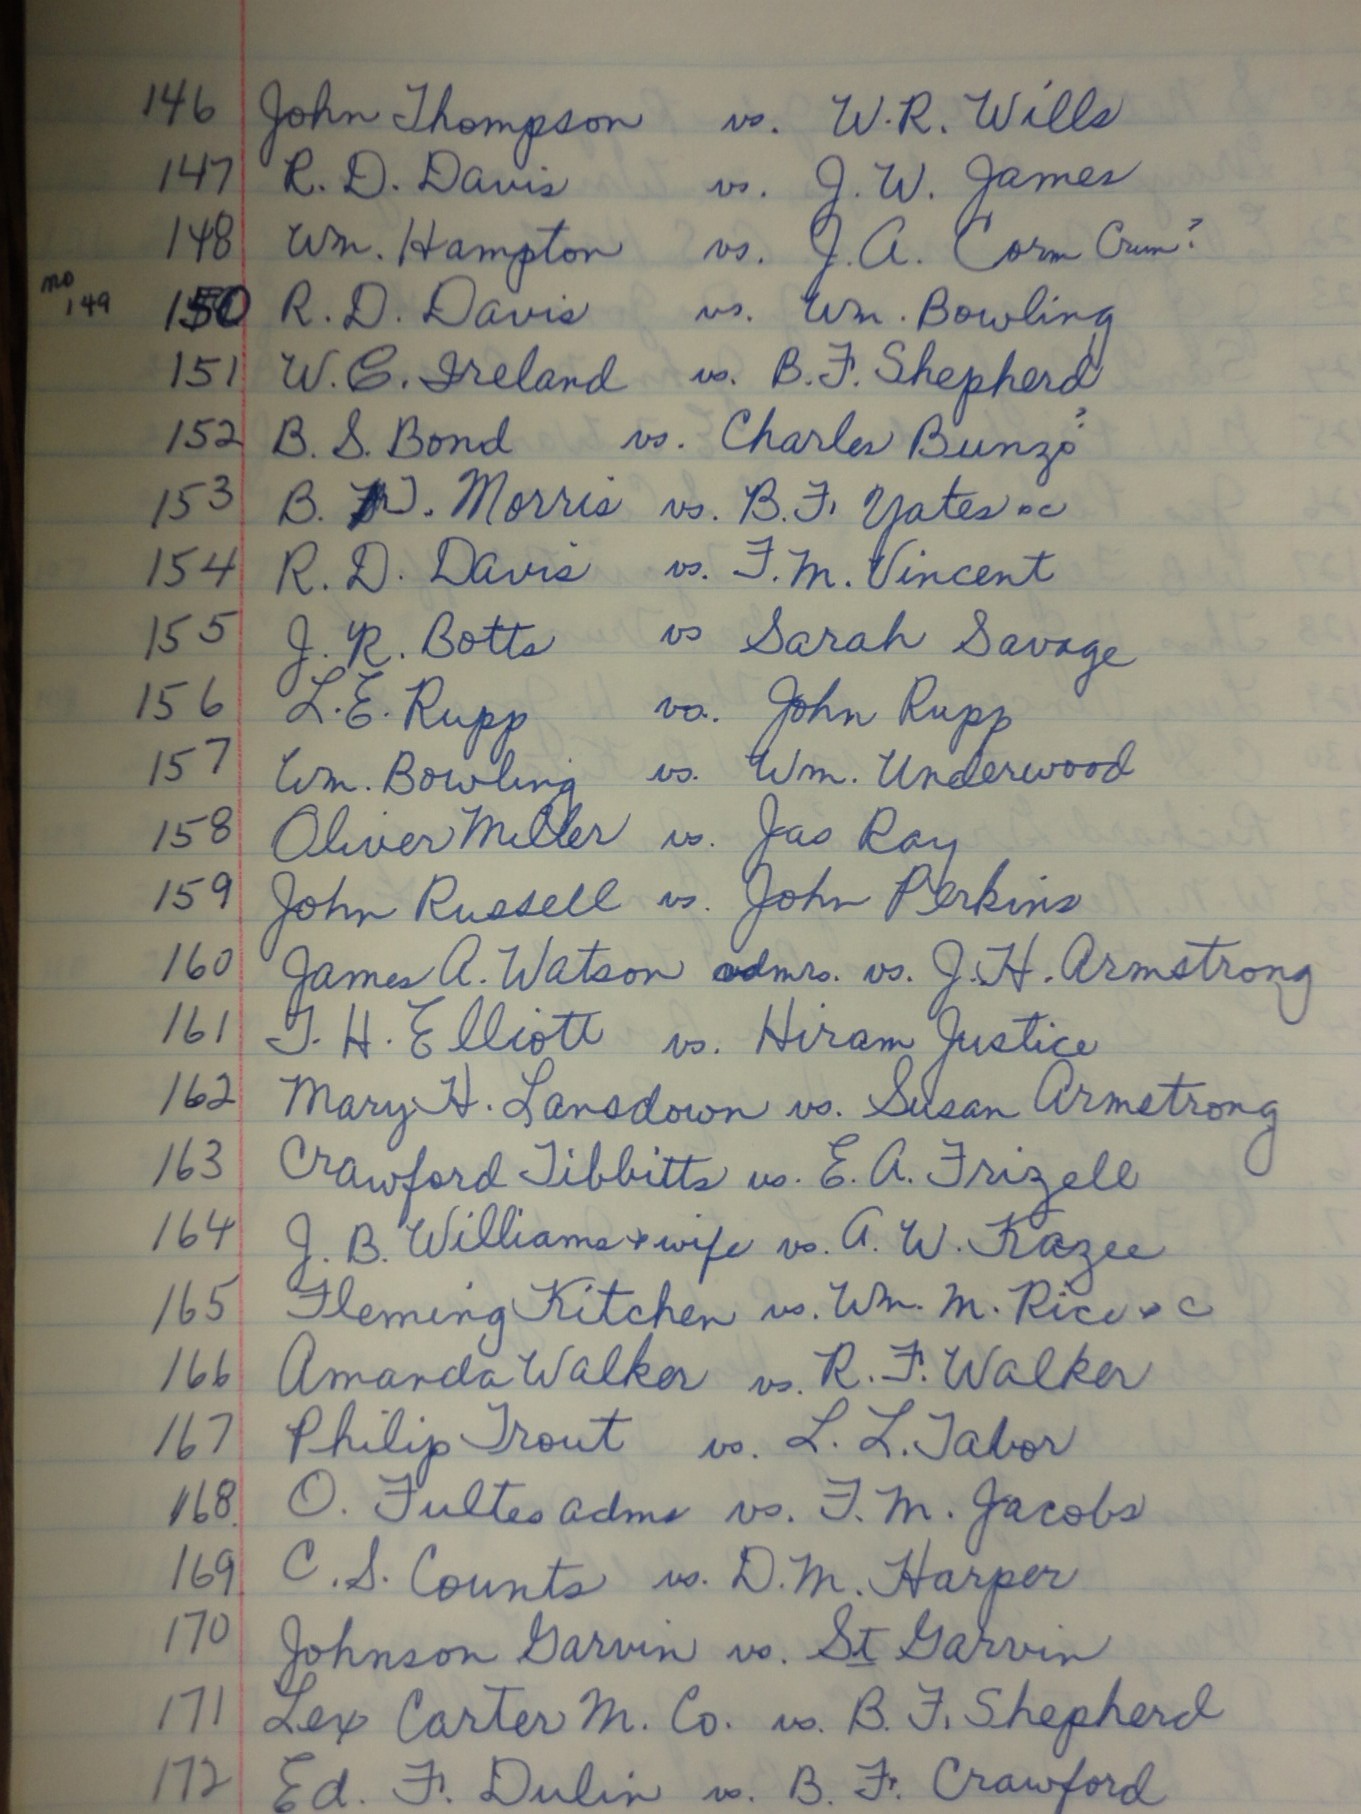 146 John Thompson vs. W.R. Wills
147 R. D. Davis vs. J. W. James
148 Wm. Hampton vs. J. A. Corm Crum?
no 149
150 R. D. Davis vs. Wm. Bowling
151 W. C. Ireland vs. B. F. Shepherd
152 B. S. Bond vs. Charles Bunzo?
153 B. J. Morris vs. B. F. Yates &c
154 R. D. Davis vs. F. M. Vincent
155 J. R. Botts vs Sarah Savage
156 L. E. Rupp vs. John Rupp
157 Wm. Bowling vs. Wm. Underwood
158 Oliver Miller vs. Jas Ray
159 John Russell vs. John Perkins
160 James A. Watson admrs. vs. J. H. Armstrong
161 T. H. Elliott vs. Hiram Justice
162 Mary H. Lansdown vs. Susan Armstrong
163 Crawford Tibbitts vs. E. A. Frizell
164 J. B. Williams & wife vs. A. W. Kazee
165 Fleming Kitchen vs. Wm. M. Rice & c
166 Amanda Walker vs. R. F. Walker
167 Philip Trout vs. L. L. Tabor
168. O. Fultes adms vs. F. M. Jacobs
169 C. S. Counts vs. D. M. Harper
170 Johnson Garvin vs. St Garvin
171 Lex Carter M. Co. vs. B. F. Shepherd
172 Ed. F. Dulin vs. B. F. Crawford